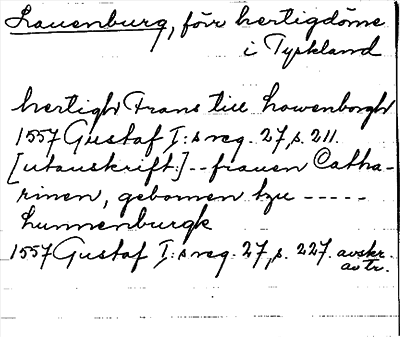 Lauenburg, förr hertigdöme
i Tyskland
hertigh Frans till Lowenborgh
1557 Gustaf I:s reg. 27, s. 211.
[utanskrift:] -- frauen Catha-
rinen, gebornen tzu -----
Lunnenburgk
1557 Gustaf I:s reg. 27, s. 227. avskr.
av tr.